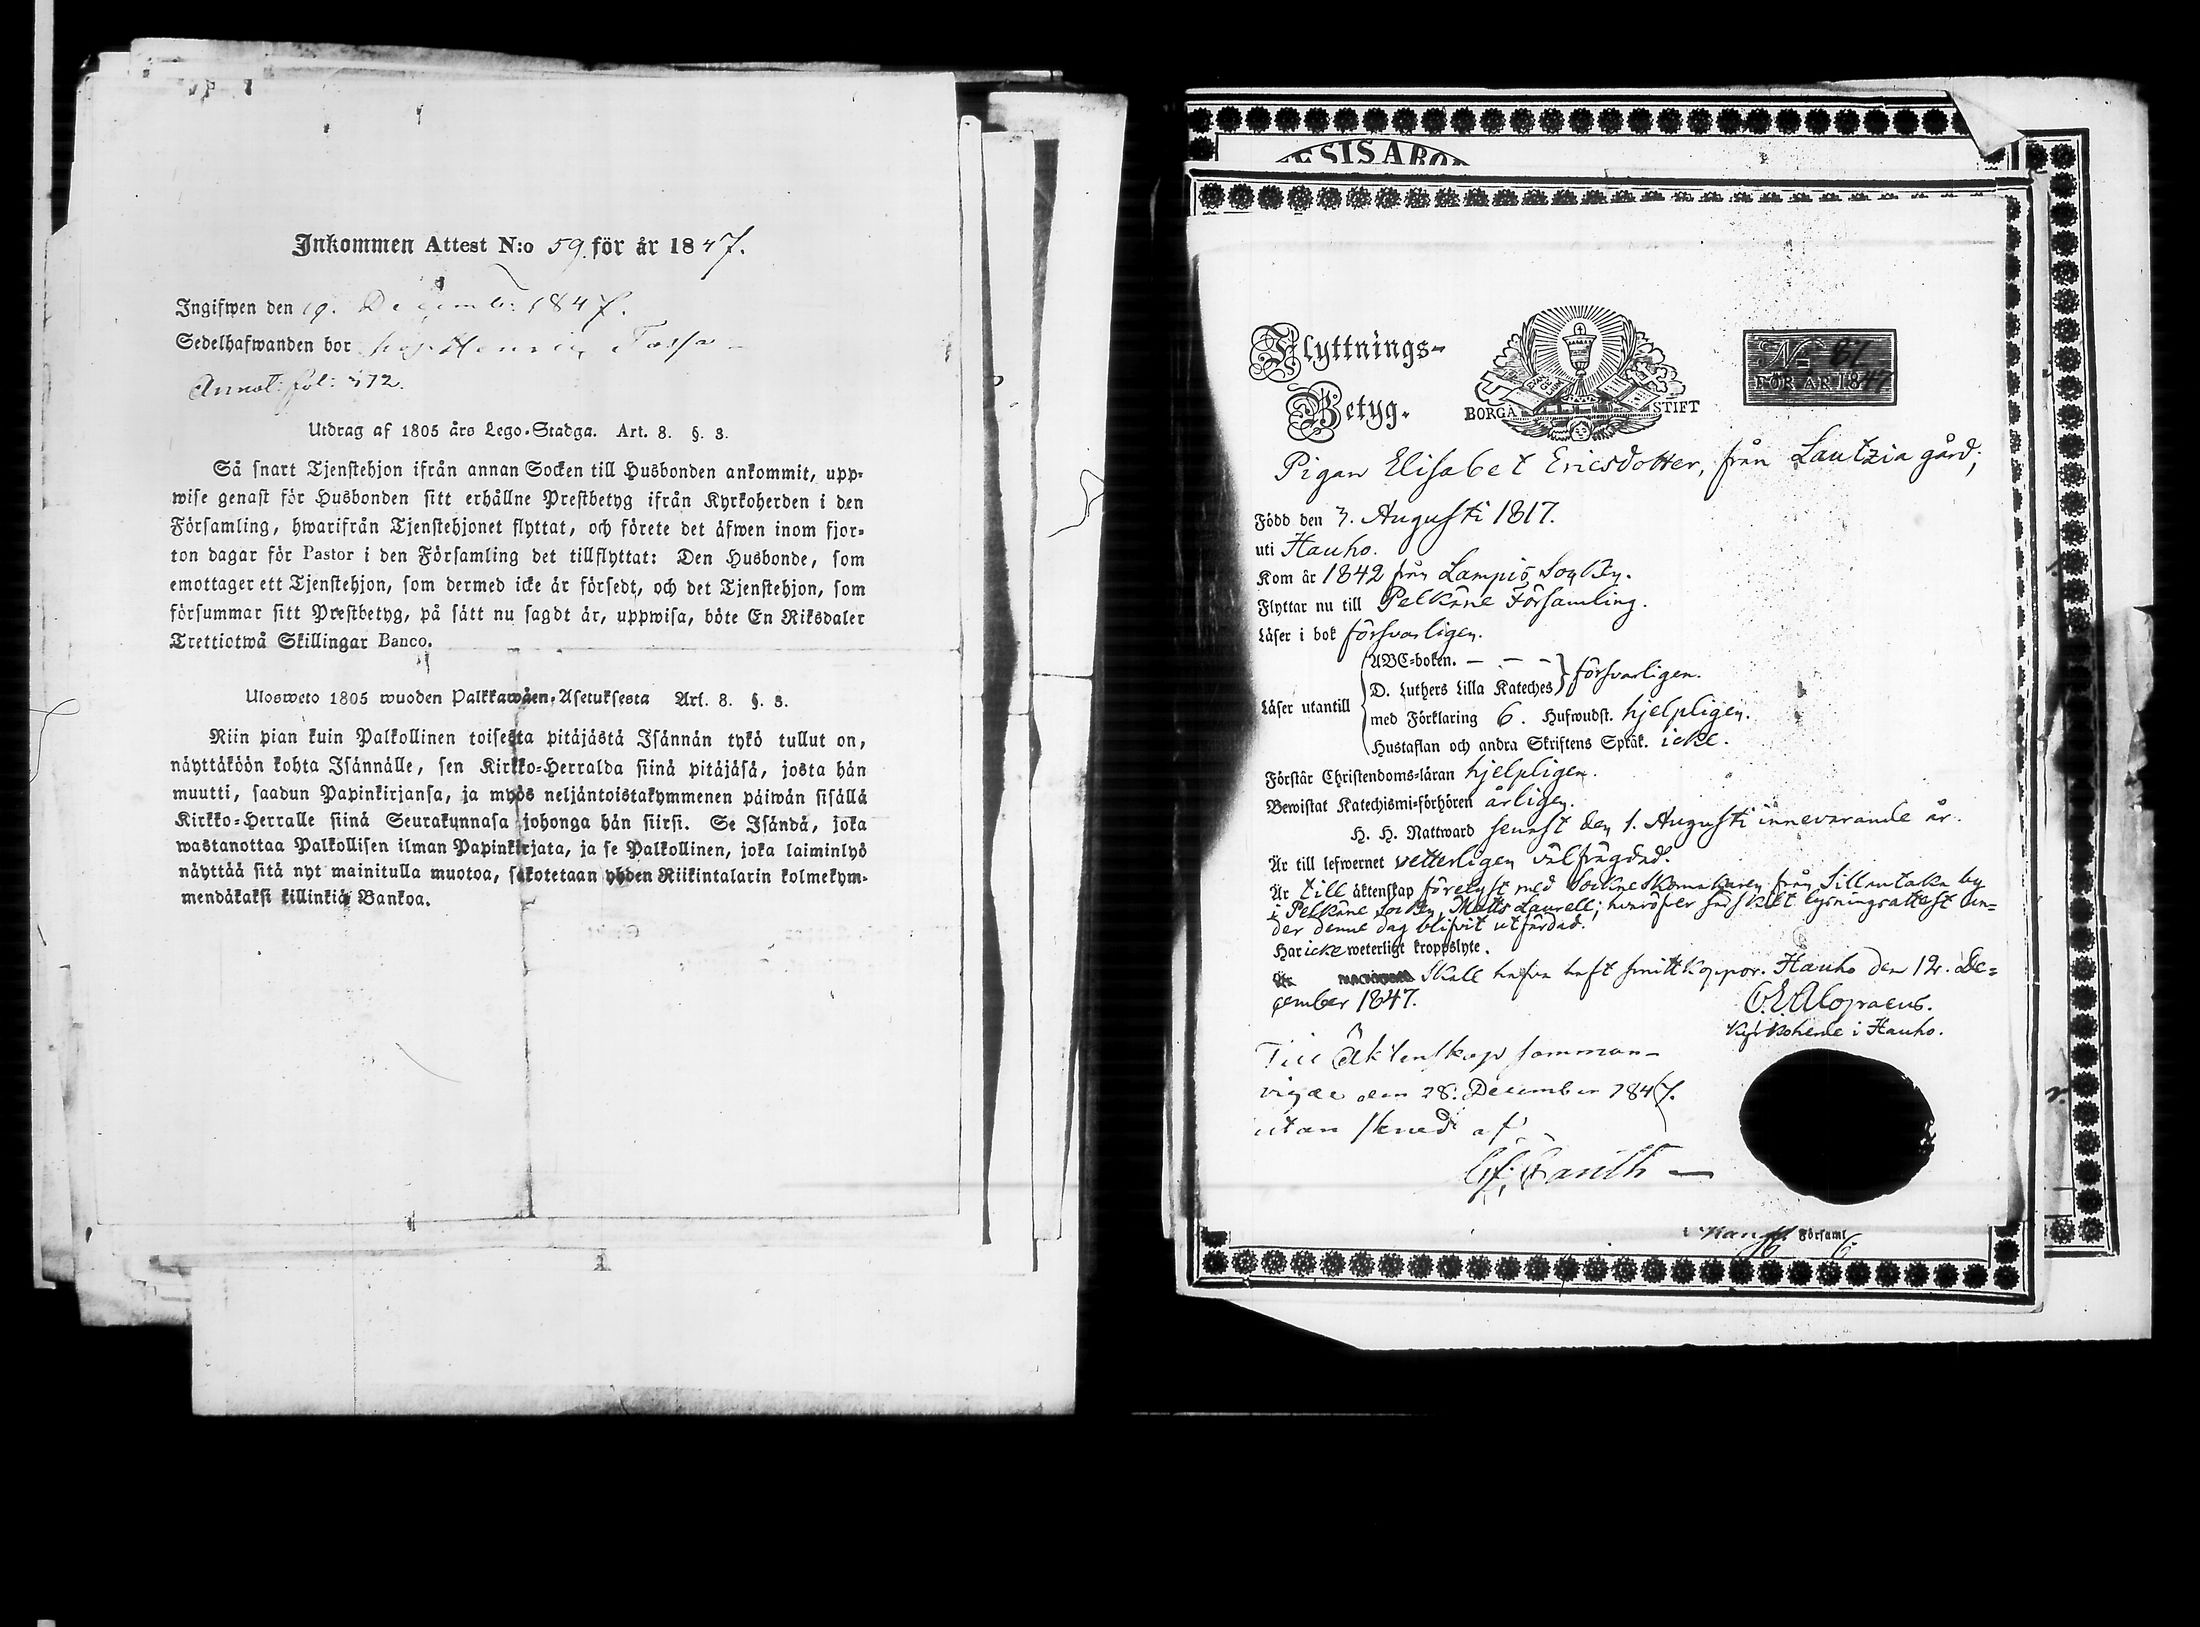 Inkommen Attest N:o 59. för år 1847.
Ingifwen den 19. Decemb: 1847.
Sedelhafwanden bor hos Henric
Annot: fol: 472.
Utdrag af 1805 års Lego-Stadga. Art. 8. §. 3.
Så snart Tjenstehjon ifrån annan Socken till Husbonden ankommit, upp-
wise genast för Husbonden sitt erhållne Prestbetyg ifrån Kyrkoherden i den
Församling, hwarifrån Tjenstehjonet flyttat, och förete det äfwen inom fjor-
ton dagar för Pastor i den Församling det tillflyttat: Den Husbonde, som
emottager ett Tjenstehjon, som dermed icke är försedt, och det Tjenstehjon, som
försummar sitt Prestbetyg, på sätt nu sagdt är, uppwisa, böte En Riksdaler
Trettiotwå Skillingar Banco.
Ulosweto 1805 wuoden Palkkawäen-Asetuksesta Art. 8. §. 3.
Niin pian kuin Palkollinen toisesta pitäjästä Isännän tykö tullut on,
näyttäköön kohta Isännälle, sen Kirkko-Herralda siinä pitäjäsä, josta hän
muutti, saadun Papinkirjansa, ja myös neljäntoistakymmenen päiwän sisällä
Kirkko-Herralle siinä Seurakunnasa johonga hän siirsi. Se Isändä, joka
wastanottaa Palkollisen ilman Papinkirjata, ja se Palkollinen, joka laiminlyö
näyttää sitä nyt mainitulla muotoa, sakotetaan yhden Riikintalarin kolmekym-
mendäkaksi killinkiä Bankoa.
Flyttnings-
Betyg.
BORGÅ STIFT
No 81
FÖR ÅR 1847
Pigan Elisabet Ericsdotter, från Lautzia gård,
Född den 3. Augusti 1817.
uti Hauho.
Kom år 1842 från Lampis Socken.
Flyttar nu till Pelkäne Församling.
Läser i bok försvarligen.
Läser utantill
ABC-boken. — — — försvarligen.
D. Luthers Lilla Kateches
med Förklaring 6. Hufwudst. hjelpligen.
Hustaflan och andra Skriftens Språk. icke.
Förstår Christendoms-läran hjelpligen.
Bewistat Katechismi-förhören årligen.
H. H. Nattward senast den 1. Augusti innevarande år.
Är till lefwernet vetterligen välfrägdad.
Är till äktenskap förelyst med Sockneskomakaren från Sillantaka by
i Pelkäne Socken, Matts Laurell; hvaröfver särskilt lysningsattest un-
der denne dag blifvit utfärdad.
Har icke weterligt kroppslyte.
Skall hafva haft smittkoppor. Hauho den 12. De-
cember 1847.
Kyrkoherde i Hauho.
Till Äktenskap samman-
vigde den 28. December 1847.
utan skned af
Församl